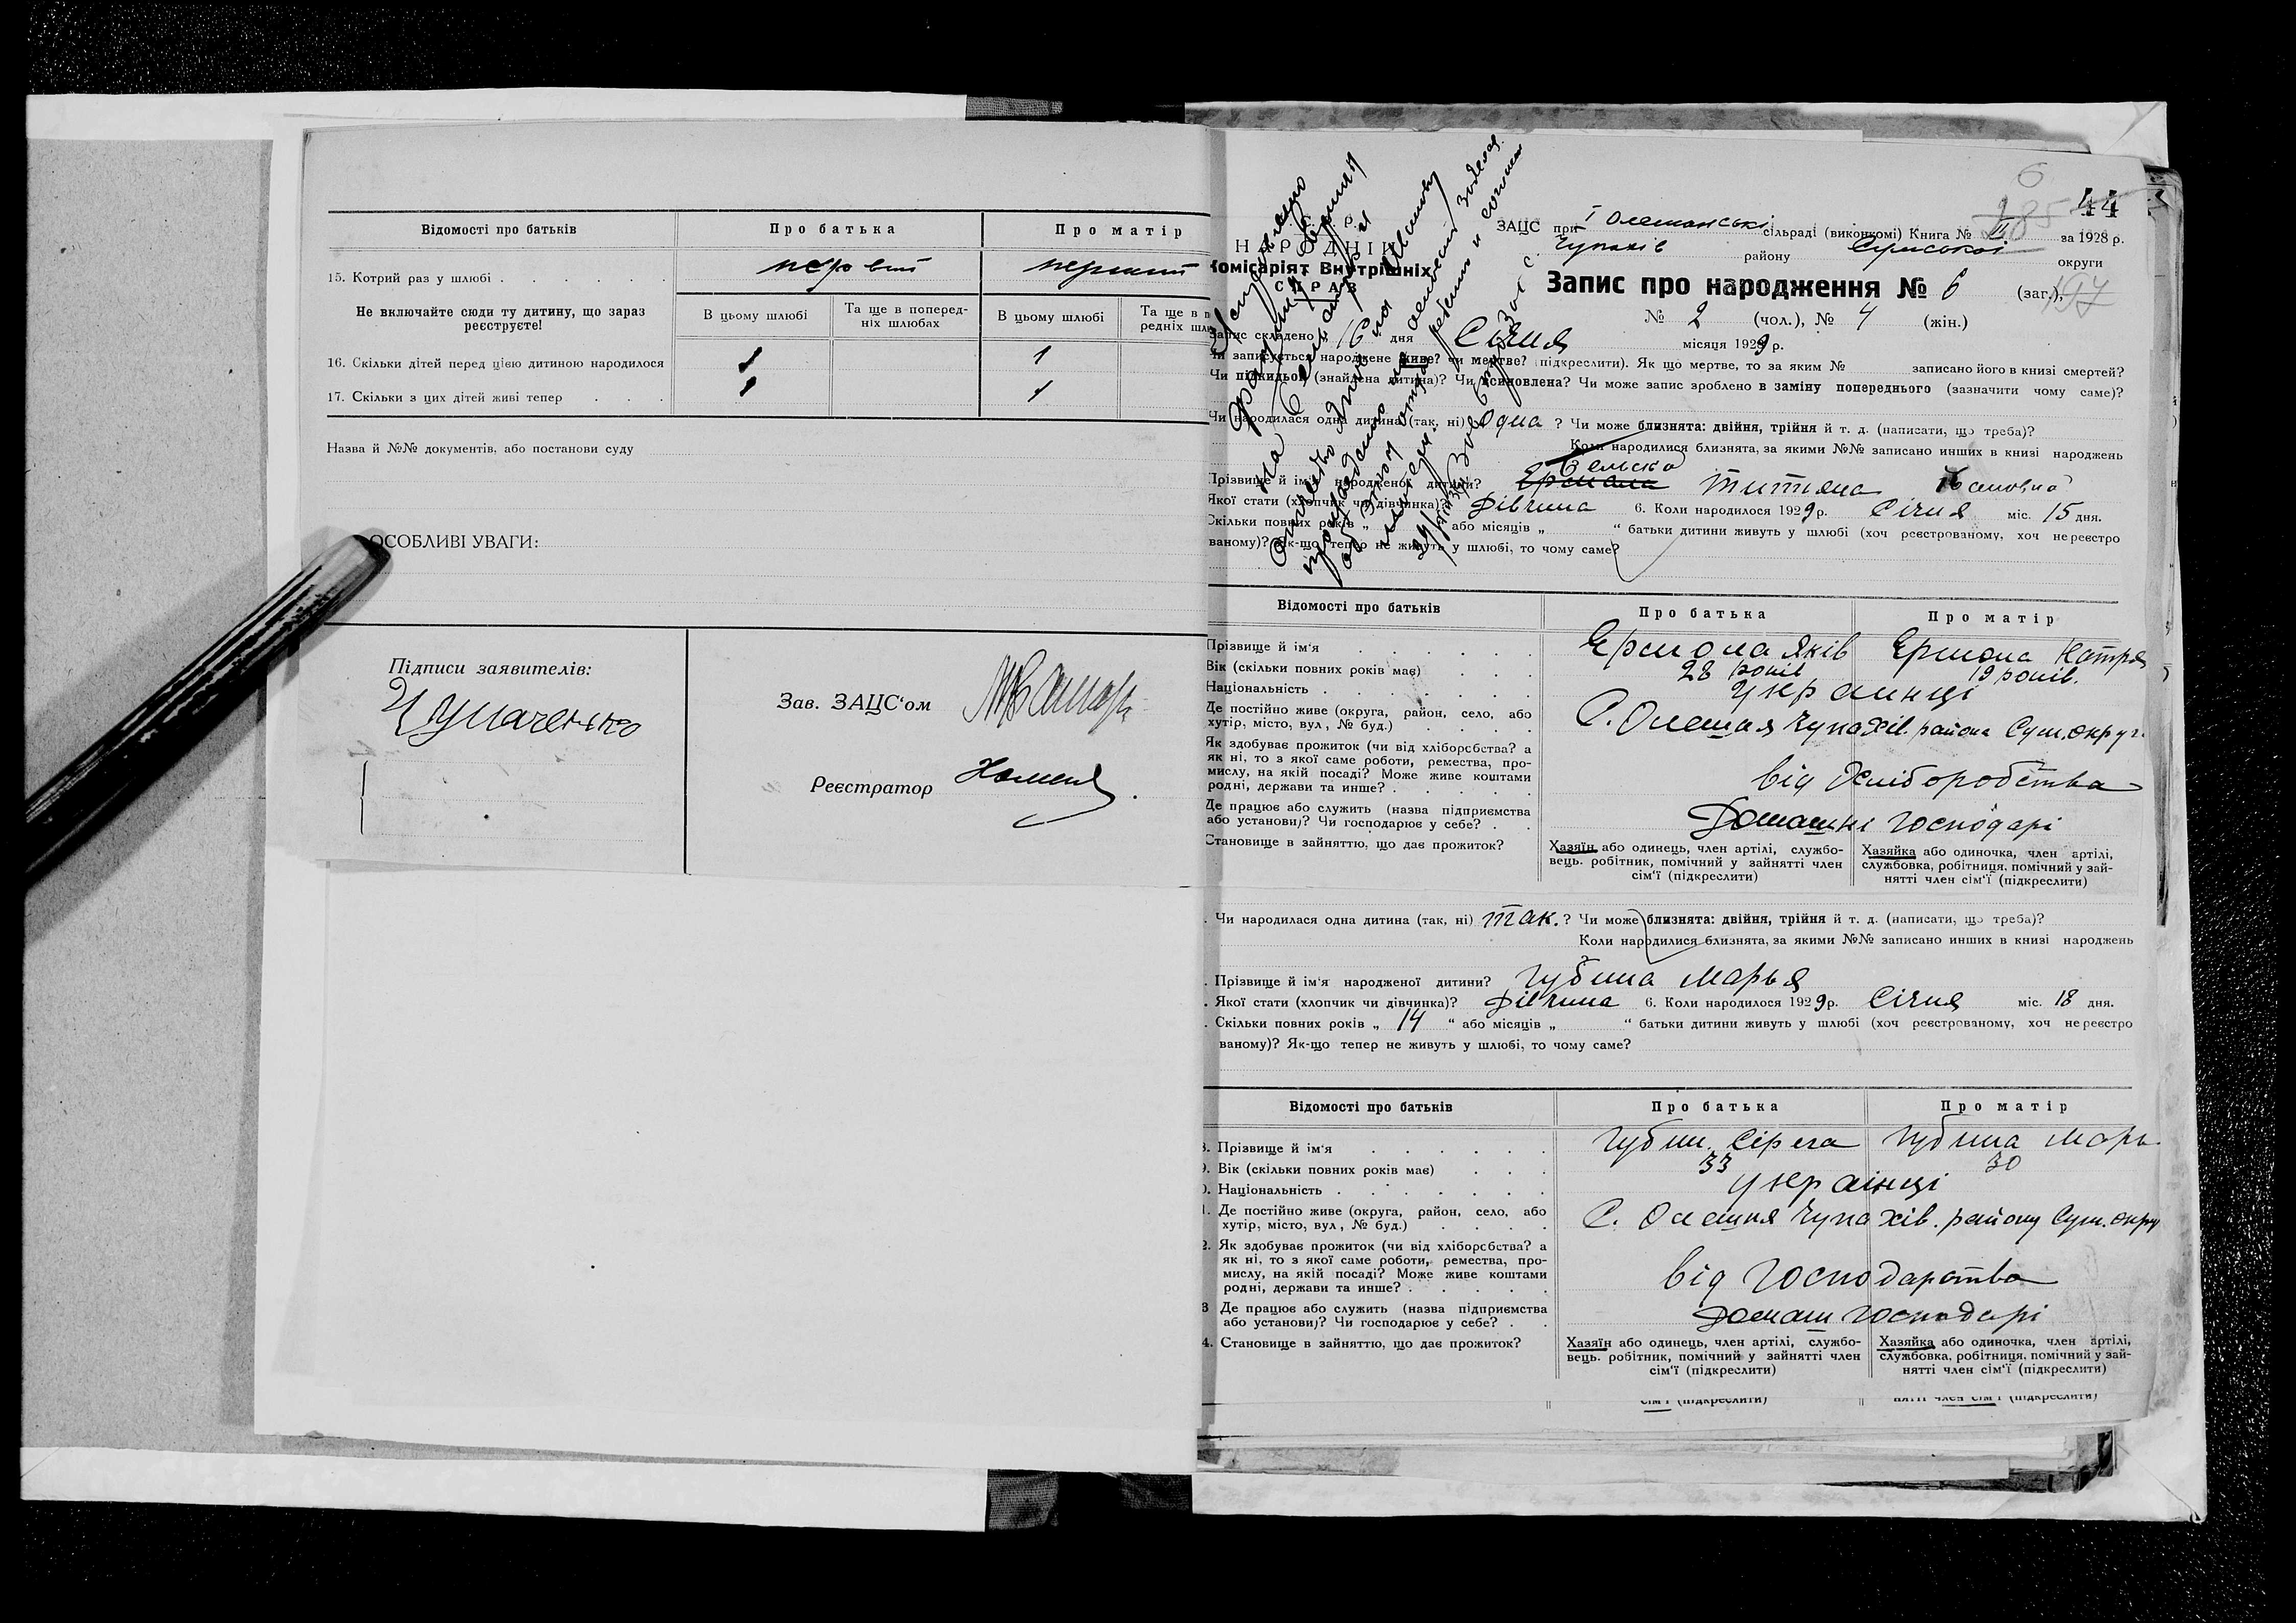 Відомості про батьків
Про батька
Про матір
15. Котрий раз у шлюбі
первий
первий
Не включайте сюди ту дитину, що зараз реєструєте!
В цьому шлюбі
Та ще в поперед-
ніх шлюбах
В цьому шлюбі
Та ще в п
редніх шлю
16. Скільки дітей перед цією дитиною народилося
1
1
17. Скільки з цих дітей живі тепер
1
1
Назва й №№ документів, або постанови суду
ОСОБЛИВІ УВАГИ:
Підписи заявителів:
Зав. ЗАЦС‘ом
Реєстратор
44
ЗАЦС при І Олешанські сільраді (виконкомі) Книга № за 1928 р.
Чупахів району Сумської округи
НАРОДНІЙ
Комісаріят Внутрішніх
СПРАВ
Запис про народження № 6 (заг.), 197
№ 2 (чол.), № 4 (жін.)
Запис складено „ 16 “ дня Січня місяця 1929 р.
Чи записується народжене живе? чи мертве? (підкреслити). Як що мертве, то за яким № записано його в книзі смертей?
Чи підкидьок (знайдена дитина)? Чи усиновлена? Чи може запис зроблено в заміну попереднього (зазначити чому саме)?
Чи народилася одна дитина (так, ні) одна ? Чи може близнята: двійня, трійня й т. д. (написати, що треба)?
Коли народилися близнята, за якими №№ записано инших в книзі народжень
Прізвище й ім'я народженої дитини? Титяна
Якої стати (хлопчик чи дівчинка)? Дівчина 6. Коли народилося 1929 р. Січня міс. 15 дня.
Скільки повних років „ “ або місяців „ “ батьки дитини живуть у шлюбі (хоч реєстрованому, хоч нереєстро
ваному)? Як-що тепер не живуть у шлюбі, то чому саме?
Відомості про батьків
Про батька
Про матір
Прізвище й ім'я
Яків
Катря
Вік (скільки повних років має)
28 років
19 років.
Національність
українці
Де постійно живе (округа, район, село, або
хутір, місто, вул, № буд.)
С. Олешня Чупахів. района Сум. округ.
Як здобуває прожиток (чи від хліборобства? а
як ні, то з якої саме роботи, ремества, про-
мислу, на якій посаді? Може живе коштами
родні, держави та инше?
від хліборобства
Де працює або служить (назва підприємства
або установи)? Чи господарює у себе?
Домашні господарі
Становище в зайняттю, що дає прожиток?
Хазяїн або одинець, член артілі, службо-
вець. робітник, помічний у зайнятті член
сім'ї (підкреслити)
Хазяйка або одиночка, член артілі,
службовка, робітниця, помічний у зай-
нятті член сім'ї (підкреслити)
Чи народилася одна дитина (так, ні) так. ? Чи може близнята: двійня, трійня й т. д. (написати, що треба)?
Коли народилися близнята, за якими №№ записано инших в книзі народжень
Прізвище й ім'я народженої дитини? Губина Марья
Якої стати (хлопчик чи дівчинка)? Дівчина 6. Коли народилося 1929 р. Січня міс. 18 дня.
Скільки повних років „ 14 “ або місяців „ “ батьки дитини живуть у шлюбі (хоч реєстрованому, хоч нереєстро
ваному)? Як-що тепер не живуть у шлюбі, то чому саме?
Відомості про батьків
Про батька
Про матір
Прізвище й ім'я
Губин
Губина Марь
Вік (скільки повних років має)
33
30
Національність
українці
Де постійно живе (округа, район, село, або
хутір, місто, вул, № буд.)
С. Олешня Чупахів. району Сум. окру
Як здобуває прожиток (чи від хліборобства? а
як ні, то з якої саме роботи, ремества, про-
мислу, на якій посаді? Може живе коштами
родні, держави та инше?
від господарства
Де працює або служить (назва підприємства
або установи)? Чи господарює у себе?
Домаш господарі
4. Становище в зайняттю, що дає прожиток?
Хазяїн або одинець, член артілі, службо-
вець. робітник, помічний у зайнятті член
сім'ї (підкреслити)
Хазяйка або одиночка, член артілі,
службовка, робітниця, помічний у зай-
нятті член сім'ї (підкреслити)
сім'ї (підкреслити)
нятті член сім'ї (підкреслити)